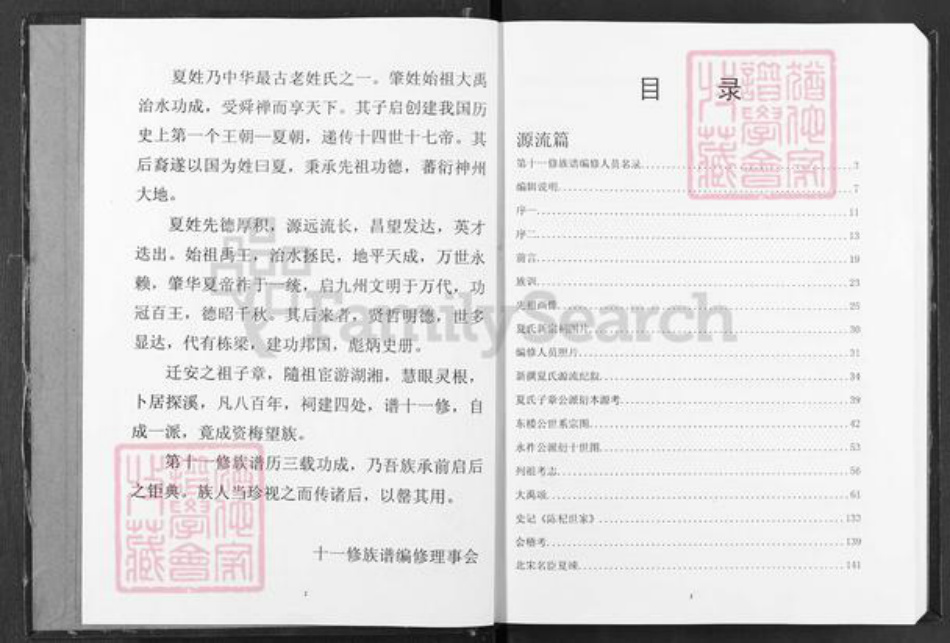 夏姓乃中华最古老姓氏之一。肇姓始祖大禹
治水功成，受舜禅而享天下。其子启创建我国历
史上第一个王朝—夏朝，递传十四世十七帝。其
后裔遂以国为姓曰夏，秉承先祖功德，蕃衍神州
大地。
夏姓先德厚积，源远流长，昌望发达，英才
迭出。始祖禹王，治水拯民，地平天成，万世永
赖，肇华夏帝祚于一统，启九州文明于万代，功
冠百王，德昭千秋。其后来者，贤哲明德，世多
显达，代有栋梁，建功邦国，彪炳史册。
迁安之祖子章，随祖宦游湖湘，慧眼灵根，
卜居探溪，凡八百年，祠建四处，谱十一修，自
成一派，竟成资梅望族。
第十一修族谱历三载功成，乃吾族承前启后
之钜典。族人当珍视之而传诸后，以罄其用。
十一修族谱编修理事会
2
目 录
源流篇
第十一修族谱编修人员名录 3
编辑说明 7
序一 11
序二 13
前言 19
族训 23
先祖画像 25
夏氏新宗祠图片 30
编修人员照片 31
新撰夏氏源流纪叙 34
夏氏子章公派衍本源考 39
东楼公世系宗图 42
永祚公派衍十世图 53
列祖考志 56
大禹颂 61
史记《陈杞世家》 133
会稽考 139
北宋名臣夏竦 141
1
FamilySearch